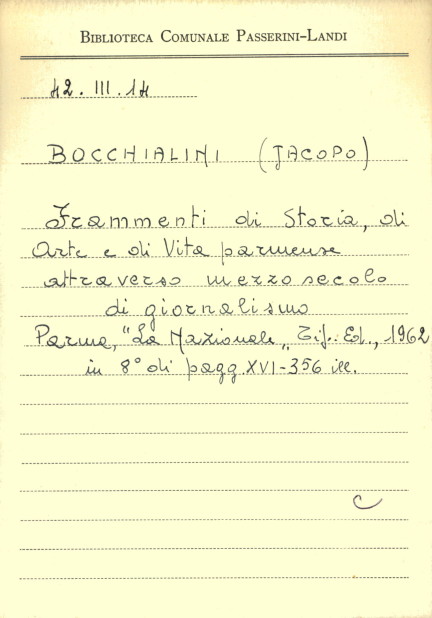 BIBLIOTECA COMUNALE PASSERINI-LANDI
42.III.14
BOCCHIALINI (JACOPO)
Frammenti di Storia, di
Arte e di Vita parmense
attraverso mezzo secolo
di giornalismo
Parma, "La Nazionale„ Tip. Ed., 1962
in 8° di pagg. XVI-356 ill.
C